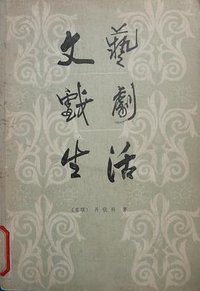 文藝
戲劇
生活
〔苏联〕丹钦科 著